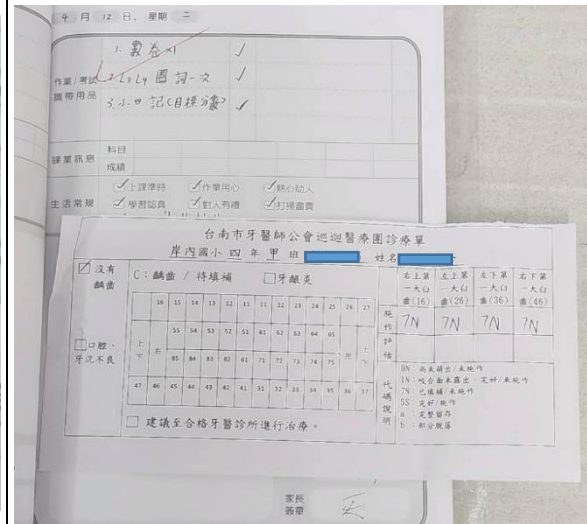 4 月 12 日，星期 二
作業/考試
攜帶用品
1. 數卷x1 ✓
2. L3 L4 圈詞一次 ✓
3. 小日記(目標分數) ✓
課業訊息
科目
成績
生活常規
☑上課準時 ☑作業用心 ☑熱心助人
☑學習認真 ☑對人有禮 ☑打掃盡責
台南市牙醫師公會巡迴醫療團診療單
岸內國小 四 年 甲 班 姓名
☑ 沒有
齲齒
☐口腔、
牙況不良
C：齲齒 / 待填補 ☐牙齦炎
16 15 14 13 12 11 21 22 23 24 25 26 27
55 54 53 52 51 61 62 63 64 65
上 下 右 左 上 下
85 84 83 82 81 71 72 73 74 75
47 46 45 44 43 42 41 31 32 33 34 35 36 37
☐ 建議至合格牙醫診所進行治療。
右上第一大臼齒(16) 左上第一大臼齒(26) 左下第一大臼齒(36) 右下第一大臼齒(46)
施作評估
7N 7N 7N 7N
代碼說明
0N：尚未萌出/未施作
1N：咬合面未露出、完好/未施作
7N：已填補/未施作
5S：完好/施作
a：完整留存
b：部分脫落
家長
簽章